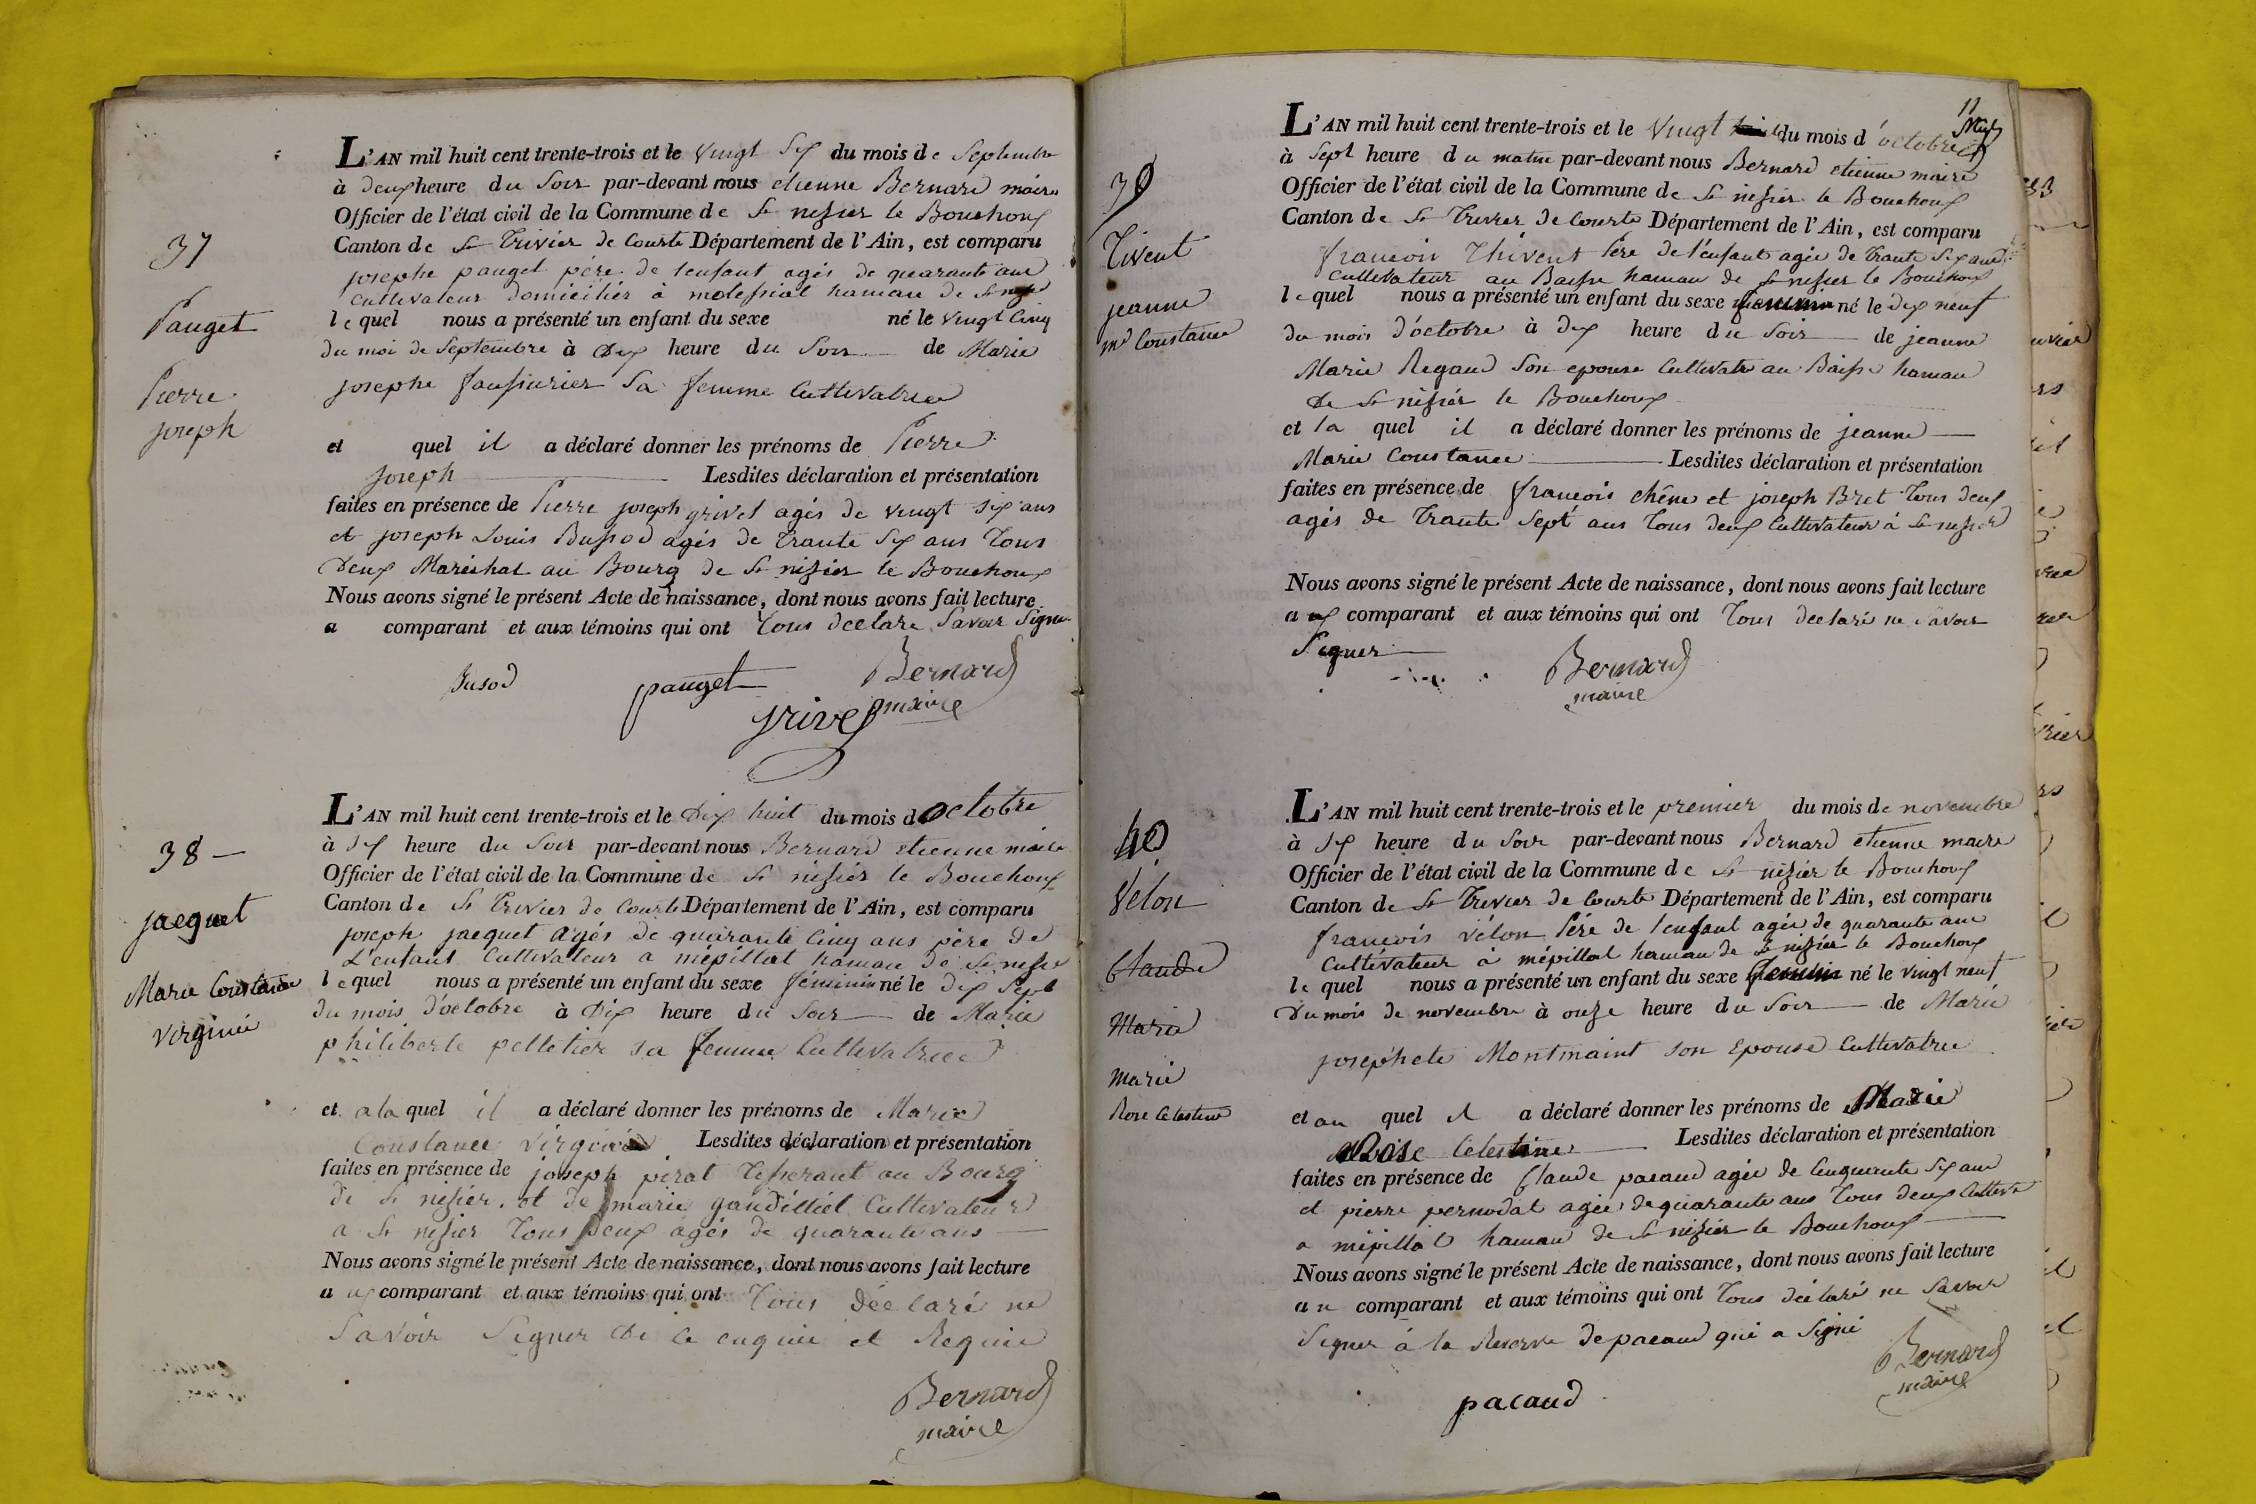 37
Pauget
Pierre
joseph
L'AN mil huit cent trente-trois et le vingt six du mois de Septembre
à deux heure du Soir par-devant nous etienne Bernard maire
Officier de l'état civil de la Commune de St nizier le Bouchoux
Canton de St Trivier de Courte Département de l'Ain, est comparu
josephe pauget père de l'enfant agés de quarante ans
Cultivateur domiciliés à molessiat hamau de St nizié
lequel nous a présenté un enfant du sexe né le vingt Cinq
du moi de Septembre à Dix heure du Soir de Marie
josephe sa femme Cultivatrice
et quel il a déclaré donner les prénoms de Pierre
joseph Lesdites déclaration et présentation
faites en présence de Pierre joseph grivel agés de vingt six ans
et joseph Louis Bussod agés de Trante Six ans Tous
Deux Maréchal au Bourg de St nizier le Bouchoux
Nous avons signé le présent Acte de naissance, dont nous avons fait lecture
a comparant et aux témoins qui ont Tous declaré Savoir Signer
Busod pauget Bernard
grivel maire
38 —
jacquet
Marie Constance
virginie
L'AN mil huit cent trente-trois et le Dix huit du mois d octobre
à six heure du Soir par-devant nous Bernard etienne maire
Officier de l'état civil de la Commune de St nizier le Bouchoux
Canton de St Trivier de Courte Département de l'Ain, est comparu
joseph jacquet agés de quarante Cinq ans père de
L'enfant Cultivateur a mépillat hamau de St nizié
lequel nous a présenté un enfant du sexe féminin né le dix Sept
du mois d'octobre à Dix heure du Soir de Marie
philiberte pelletier sa femme Cultivatrice
et a la quel il a déclaré donner les prénoms de Marie
Constance virginie Lesdites déclaration et présentation
faites en présence de joseph pirat Tisserant au Bourg
de St nizier. et de marie gaudilliet Cultivateur
a St nizier Tous Deux agés de quarante ans
Nous avons signé le présent Acte de naissance, dont nous avons fait lecture
aux comparant et aux témoins qui ont Tous déclaré ne
Savoir Signer De ce enquie et Requie
Bernard
maire
11
39
Tivent
jeanne
me Constance
L'AN mil huit cent trente-trois et le vingt du mois d'octobre
à Sept heure du matin par-devant nous Bernard etienne maire
Officier de l'état civil de la Commune de St nizier le Bouchoux
Canton de St Trivier de Courte Département de l'Ain, est comparu
françois Thivent Père de l'enfant agée de Trante Six ans
Cultivateur au Baisse hamau de St nizier le Bouchoux
lequel nous a présenté un enfant du sexe feminin né le dix neuf
du mois d'octobre à dix heure du Soir de jeanne
Marie Regaud Son epouse Cultivate au Baisse hamau
de St nizier le Bouchoux
et la quel il a déclaré donner les prénoms de jeanne
Marie Constance Lesdites déclaration et présentation
faites en présence de françois chêne et joseph Bret Tous deux
agés de Trante Sept ans Tous deux Cultivateur à St nizier
Nous avons signé le présent Acte de naissance, dont nous avons fait lecture
aux comparant et aux témoins qui ont Tous déclaré ne Savoir
Signer
Bernard
maire
40
Vélon
Claude
Marie
marie
Rose Celestine
L'AN mil huit cent trente-trois et le premier du mois de novembre
à six heure du Soir par-devant nous Bernard etienne maire
Officier de l'état civil de la Commune de St nizier le Bouchoux
Canton de St Trivier de Courte Département de l'Ain, est comparu
françois vélon Père de l'enfant agée de quarante ans
Cultivateur à mépillat hamau de St nizier le Bouchoux
lequel nous a présenté un enfant du sexe feminin né le vingt neuf
Du mois de novembre à onze heure du Soir de Marie
josephete Montmaint son Epouse Cultivatrice
et au quel il a déclaré donner les prénoms de Marie
Rose Celestine Lesdites déclaration et présentation
faites en présence de Claude pacaud agée de Cinquante Six ans
et pierre pernodat agée de quarante ans Tous deux Cultiva
a mépillat hamau de St nizier le Bouchoux
Nous avons signé le présent Acte de naissance, dont nous avons fait lecture
au comparant et aux témoins qui ont Tous déclaré ne Savoir
Signer à la Reserve de pacaud qui a Signé
Bernard
maire
pacaud